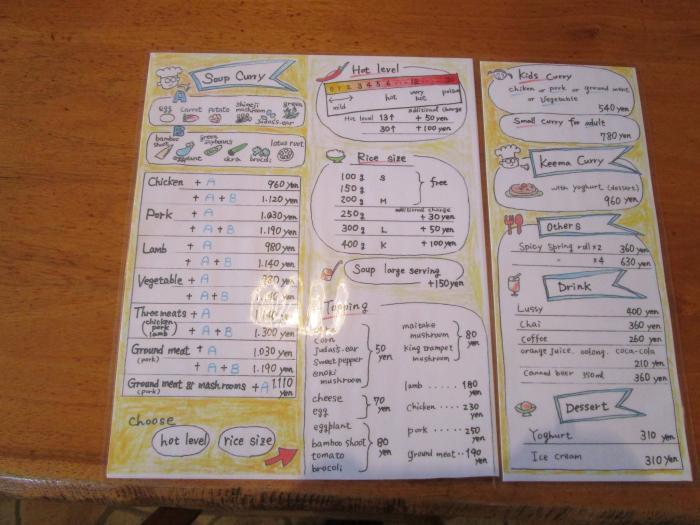 Soup Curry
A
egg carrot potato shimeji mushroom Judas's-ear green
B
bamboo shoot eggplant green soybeans okra brocoli lotus root
Chicken + A 960 yen
+ A + B 1.120 yen
Pork + A 1.030 yen
+ A + B 1.190 yen
Lamb + A 980 yen
+ A + B 1.140 yen
Vegetable + A yen
+ A + B yen
Three meats + A yen
(chicken pork lamb) + A + B 1.300 yen
Ground meat + A 1.030 yen
(pork) + A + B 1.190 yen
Ground meat & mashrooms + A 1.110 yen
(pork)
choose
hot level rice size
Hot level
0 1 2 3 4 5 6 ... 12
mild hot very hot poison
additional charge
Hot level 13↑ + 50 yen
30↑ + 100 yen
Rice size
100 g S
150 g
200 g M
free
additional charge
250 g + 30 yen
300 g L + 50 yen
400 g K + 100 yen
Soup large serving
+150 yen
Topping
corn
Judas's-ear
sweet pepper
enoki mushroom
50 yen
cheese
egg
70 yen
eggplant
bamboo shoot
tomato
brocoli
80 yen
maitake mushroom
king trumpet mushroom
80 yen
lamb ..... 180 yen
chicken .... 230 yen
pork ..... 250 yen
ground meat .. 190 yen
Kids Curry
chiken or pork or ground meat
or vegetable
540 yen
Small curry for adult
780 yen
Keema Curry
with yoghurt (dessert)
960 yen
Others
Spicy Spring roll x2 360 yen
〃 x4 630 yen
Drink
Lussy 400 yen
Chai 360 yen
Coffee 260 yen
orange juice. oolong. coca-cola
210 yen
Canned beer 350ml 360 yen
Dessert
Yoghurt 310 yen
Ice cream 310 yen